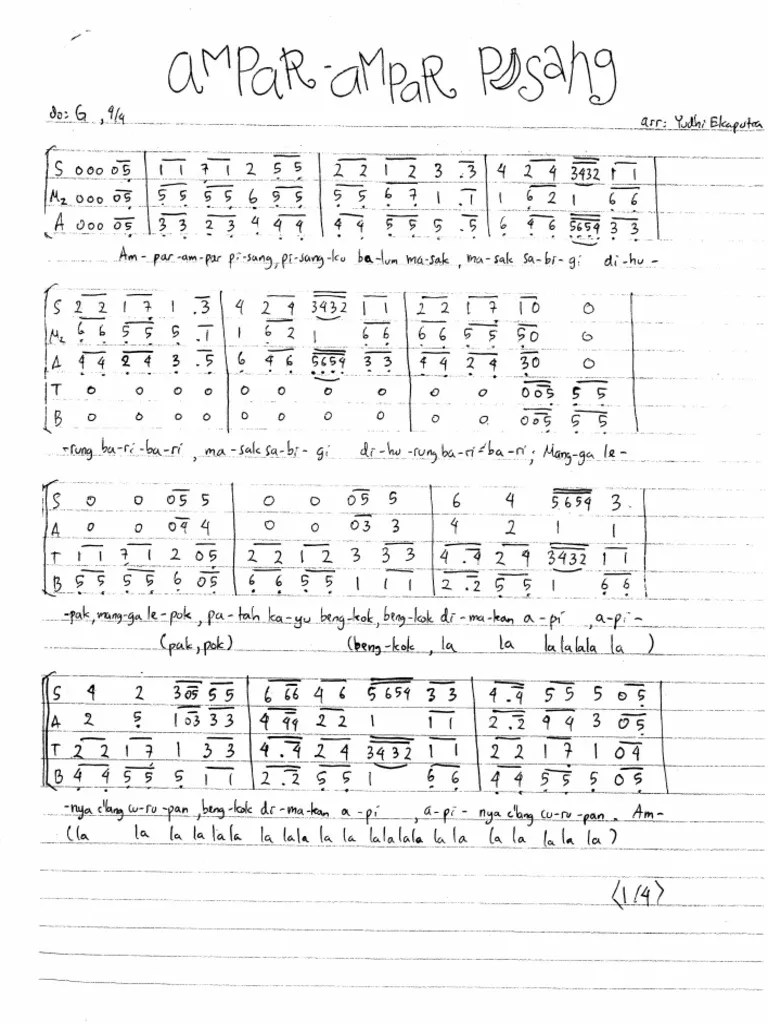 AMPAR-AMPAR PISANG
do: G , 4/4
arr: Yudhi Ekaputra
S 000 05 | 11 71 2 55 | 22 12 3 .3 | 4 24 3432 11
M2 000 05 | 55 55 6 55 | 55 67 1 .1 | 1 62 1 66
A 000 05 | 33 23 4 44 | 44 55 5 .5 | 6 46 5654 33
Am- par-am-par pi-sang, pi-sang-ku ba-lum ma-sak , ma-sak sa-bi-gi di-hu-
S 22 17 1 .3 | 4 24 3432 11 | 22 17 10 0
M2 66 55 5 .1 | 1 62 1 66 | 66 55 50 0
A 44 24 3 .5 | 6 46 5654 33 | 44 24 30 0
T 0 0 0 0 | 0 0 0 0 | 0 0 005 55
B 0 0 0 0 | 0 0 0 0 | 0 0 005 55
-rung ba-ri-ba-ri , ma-sak sa-bi-gi di-hu-rung ba-ri-ba-ri; Mang-ga le-
S 0 0 05 5 | 0 0 05 5 | 6 4 5654 3.
A 0 0 04 4 | 0 0 03 3 | 4 2 1 1
T 11 71 2 05 | 22 12 3 33 | 4.4 24 3432 11
B 55 55 6 05 | 66 55 1 11 | 2.2 55 1 66
-pak, mang-ga le-pok , pa-tah ka-yu beng-kok, beng-kok di-ma-kan a-pi , a-pi-
(pak, pok) (beng-kok , la la lalalala la )
S 4 2 305 55 | 6 66 4 6 5654 33 | 4.4 55 5 05
A 2 5 103 33 | 4 44 22 1 11 | 2.2 44 3 05
T 22 17 1 33 | 4.4 24 3432 11 | 22 17 1 04
B 44 55 5 11 | 2.2 55 1 66 | 44 55 5 05
-nya c'lang cu-ru-pan , beng-kok di-ma-kan a-pi , a-pi- nya c'lang cu-ru-pan . Am-
(la la la la lala la lala la la lalalala la la la la la la la )
<1/4>